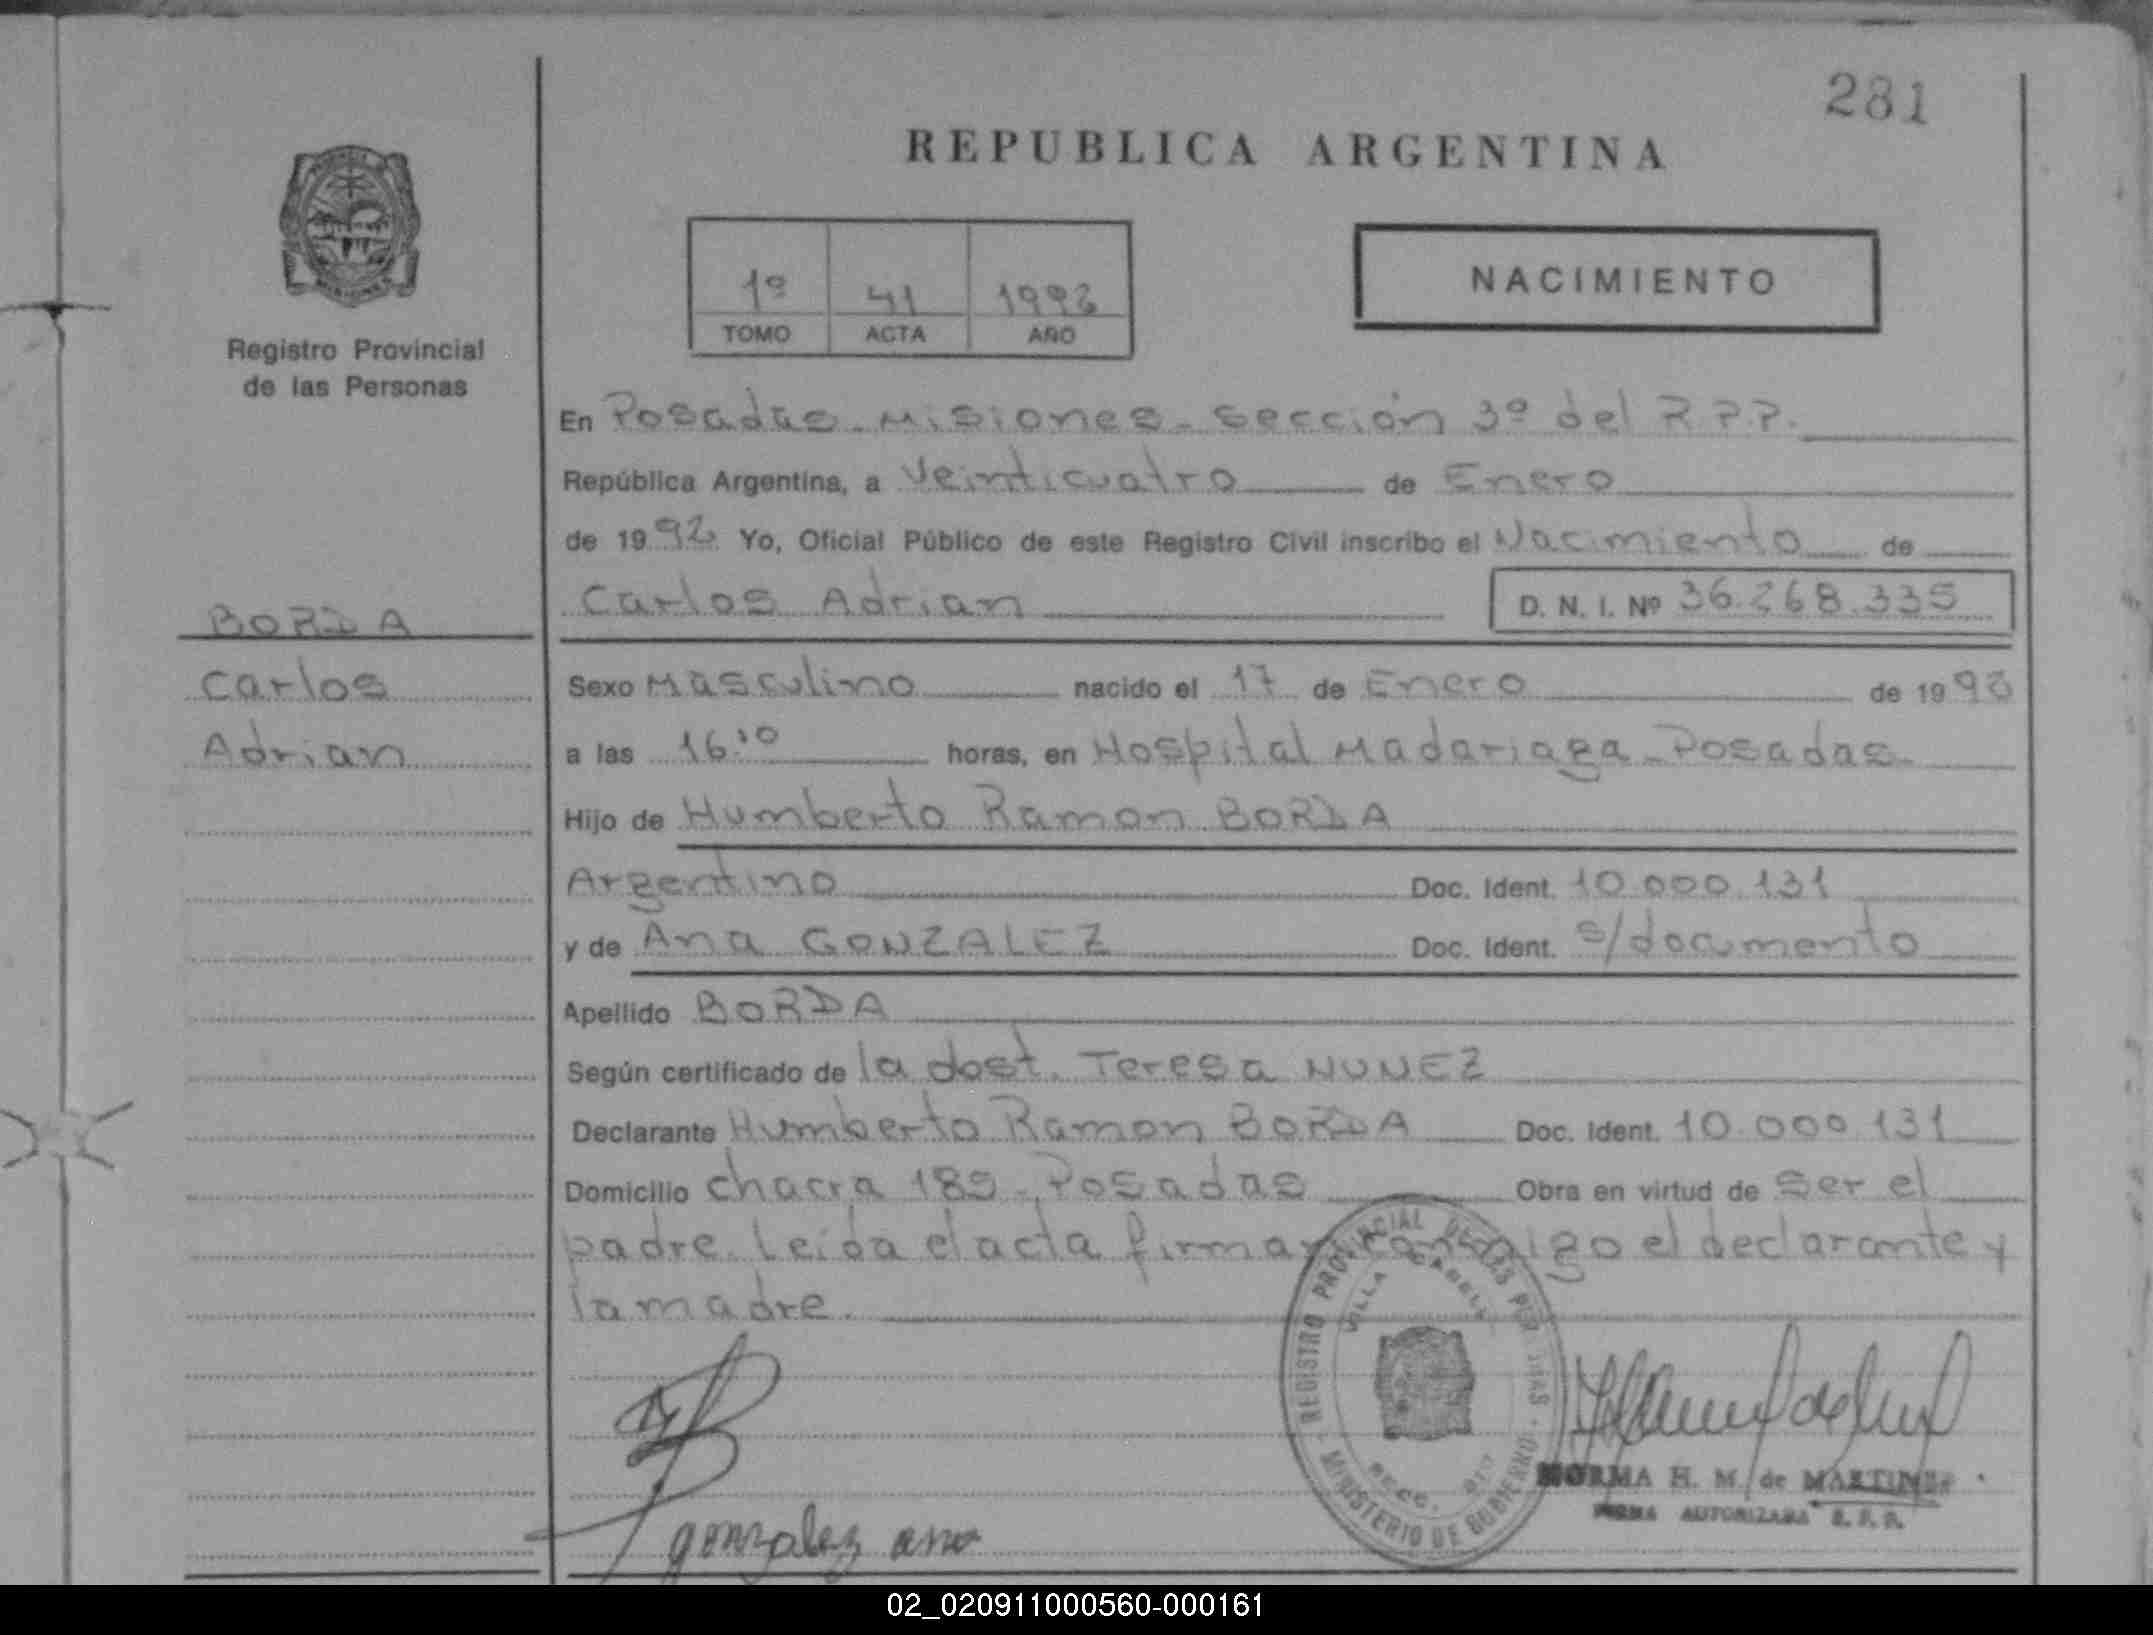 281
REPUBLICA ARGENTINA
1º 41 1992
TOMO ACTA AÑO
NACIMIENTO
Registro Provincial
de las Personas
En Posadas - Misiones - Sección 3º del R.P.P.
República Argentina, a Veinticuatro de Enero
de 1992 Yo, Oficial Público de este Registro Civil inscribo el Nacimiento de
Carlos Adrian D. N. I. Nº 36.268.335
BORDA
Carlos
Adrian
Sexo Masculino nacido el 17 de Enero de 1992
a las 16:10 horas, en Hospital Madariaga - Posadas
Hijo de Humberto Ramon BORDA
Argentino Doc. Ident. 10.000.131
y de Ana GONZALEZ Doc. Ident. s/documento
Apellido BORDA
Según certificado de la obst. Teresa NUNEZ
Declarante Humberto Ramon BORDA Doc. Ident. 10.000.131
Domicilio chacra 189 - Posadas Obra en virtud de ser el
padre. Leida el acta firman conmigo el declarante y
la madre.
REGISTRO PROVINCIAL DE LAS PERSONAS
VILLA CABELLO
SECC.
MINISTERIO DE GOBIERNO
gonzalez ana
NORMA H. M. de MARTINEZ
FIRMA AUTORIZADA
02_020911000560-000161